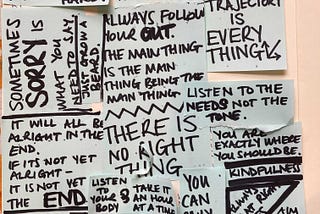 SOMETIMES
SORRY IS
WHAT YOU
NEED TO SAY.
HEARD.
ALWAYS FOLLOW
YOUR GUT.
THE MAIN THING
IS THE MAIN
THING BEING THE
MAIN THING
TRAJECTORY
IS
EVERY
THING
LISTEN TO THE
NEEDS NOT THE
TONE.
IT WILL ALL BE
ALRIGHT IN THE
END.
IF ITS NOT YET
ALRIGHT –
IT IS NOT YET
THE END
THERE IS
NO RIGHT
THING
YOU ARE
EXACTLY WHERE
YOU SHOULD BE.
KINDFULNESS
LISTEN
TO
YOUR
BODY
TAKE IT
AN HOUR
AT A TIME
YOU
CAN
ALWAYS